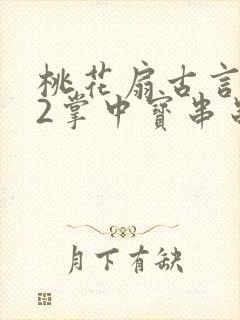 桃花扇古言
2掌中寶串
月下有缺